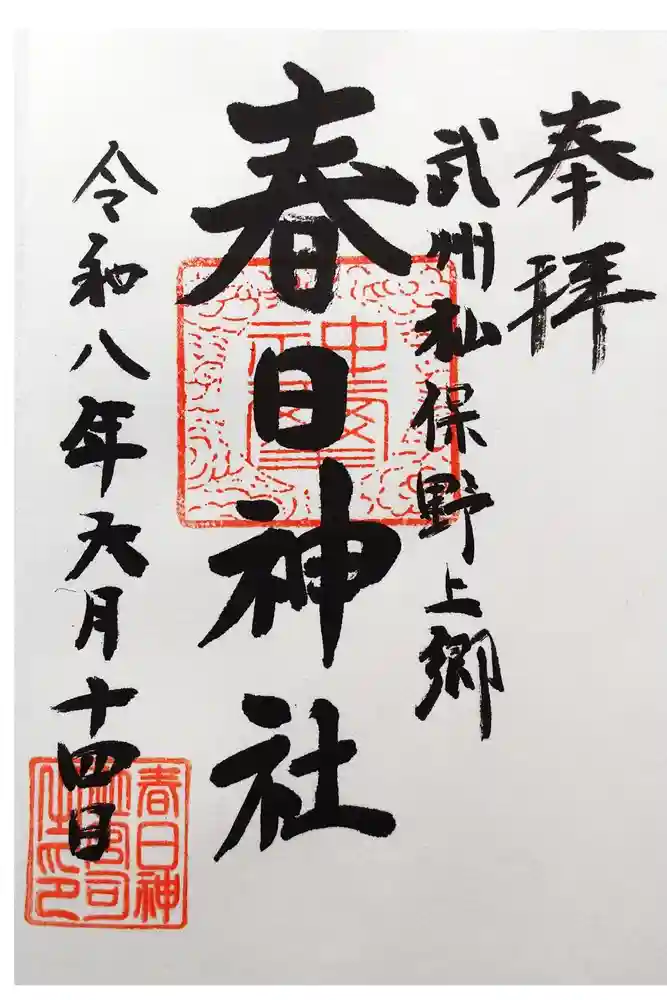 奉拝
武州杣保野上郷
春日神社
令和八年六月十四日
春日神
社宮司
之印